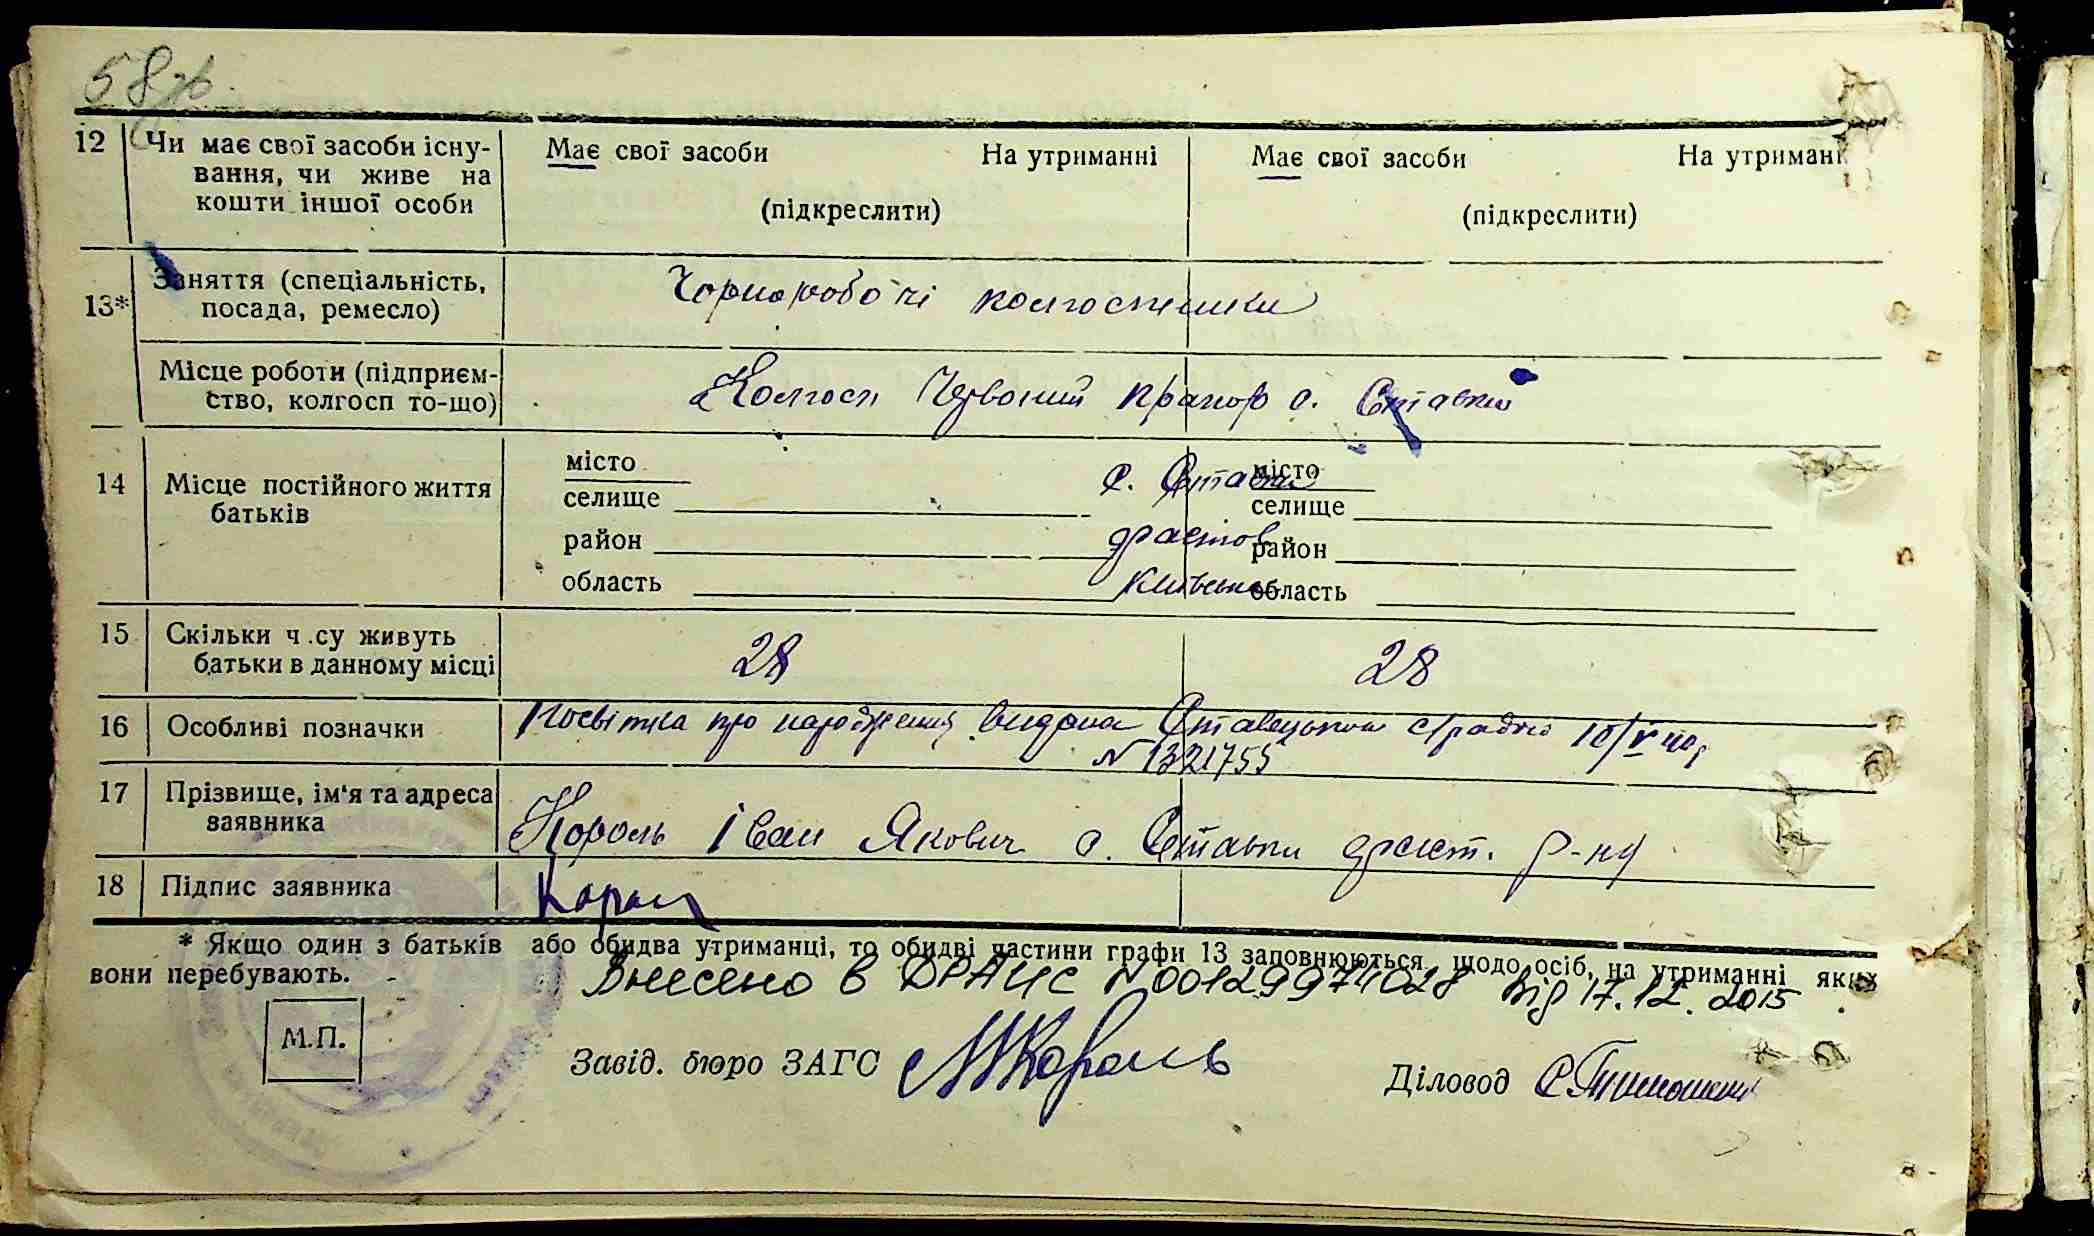 58
12 Чи має свої засоби існу-
вання, чи живе на
кошти іншої особи
Має свої засоби На утриманні
(підкреслити)
Має свої засоби На утриман
(підкреслити)
13* Заняття (спеціальність,
посада, ремесло)
Чорноробочі колгоспники
Місце роботи (підприєм-
ство, колгосп то-що)
Колгосп Червоний прапор с. Ставки
14 Місце постійного життя
батьків
місто
селище
район
область
с. Ставки
Київська
місто
селище
район
область
15 Скільки ч.су живуть
батьки в данному місці
28 28
16 Особливі позначки
Посвітка про народження видана Ставецькою с/радою 10/V 40р
N 1321755
17 Прізвище, ім'я та адреса
заявника
Король Іван Якович с. Ставки р-ну
18 Підпис заявника
Король
* Якщо один з батьків або обидва утриманці, то обидві частини графи 13 заповнюються щодо осіб, на утриманні яких
вони перебувають.
Внесено в ДРАЦС N00129974028 від 17.12.2015
М.П.
Завід. бюро ЗАГС МКороль
Діловод